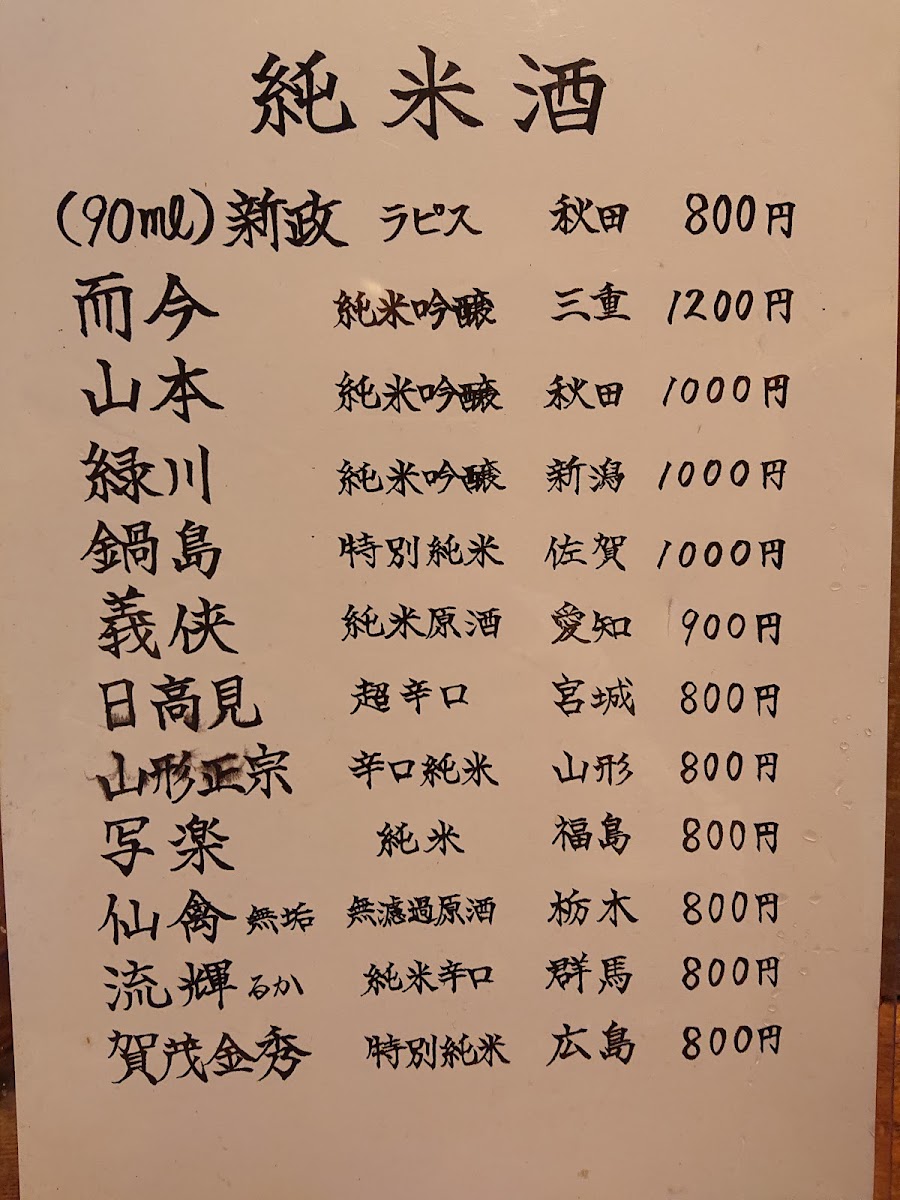 純米酒
(90ml) 新政 ラピス 秋田 800円
而今 純米吟醸 三重 1200円
山本 純米吟醸 秋田 1000円
緑川 純米吟醸 新潟 1000円
鍋島 特別純米 佐賀 1000円
義侠 純米原酒 愛知 900円
日高見 超辛口 宮城 800円
山形正宗 辛口純米 山形 800円
写楽 純米 福島 800円
仙禽 無垢 無濾過原酒 栃木 800円
流輝 るか 純米辛口 群馬 800円
賀茂金秀 特別純米 広島 800円